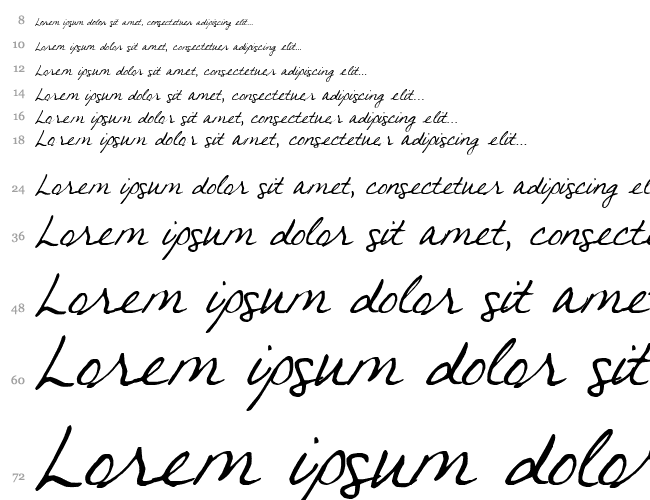 8 Lorem ipsum dolor sit amet, consectetuer adipiscing elit...
10 Lorem ipsum dolor sit amet, consectetuer adipiscing elit...
12 Lorem ipsum dolor sit amet, consectetuer adipiscing elit...
14 Lorem ipsum dolor sit amet, consectetuer adipiscing elit...
16 Lorem ipsum dolor sit amet, consectetuer adipiscing elit...
18 Lorem ipsum dolor sit amet, consectetuer adipiscing elit...
24 Lorem ipsum dolor sit amet, consectetuer adipiscing el
36 Lorem ipsum dolor sit amet, consect
48 Lorem ipsum dolor sit ame
60 Lorem ipsum dolor sit
72 Lorem ipsum dolo